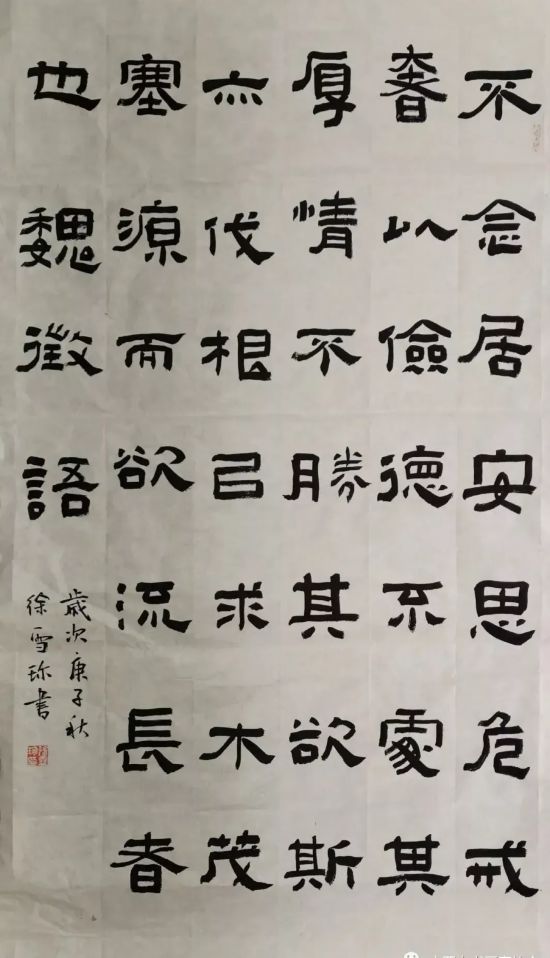 不念居安思危戒
奢以儉德不處其
厚情不勝其欲斯
亦伐根已求木茂
塞源而欲流長者
也魏徵語
歲次庚子秋
徐雪珎書